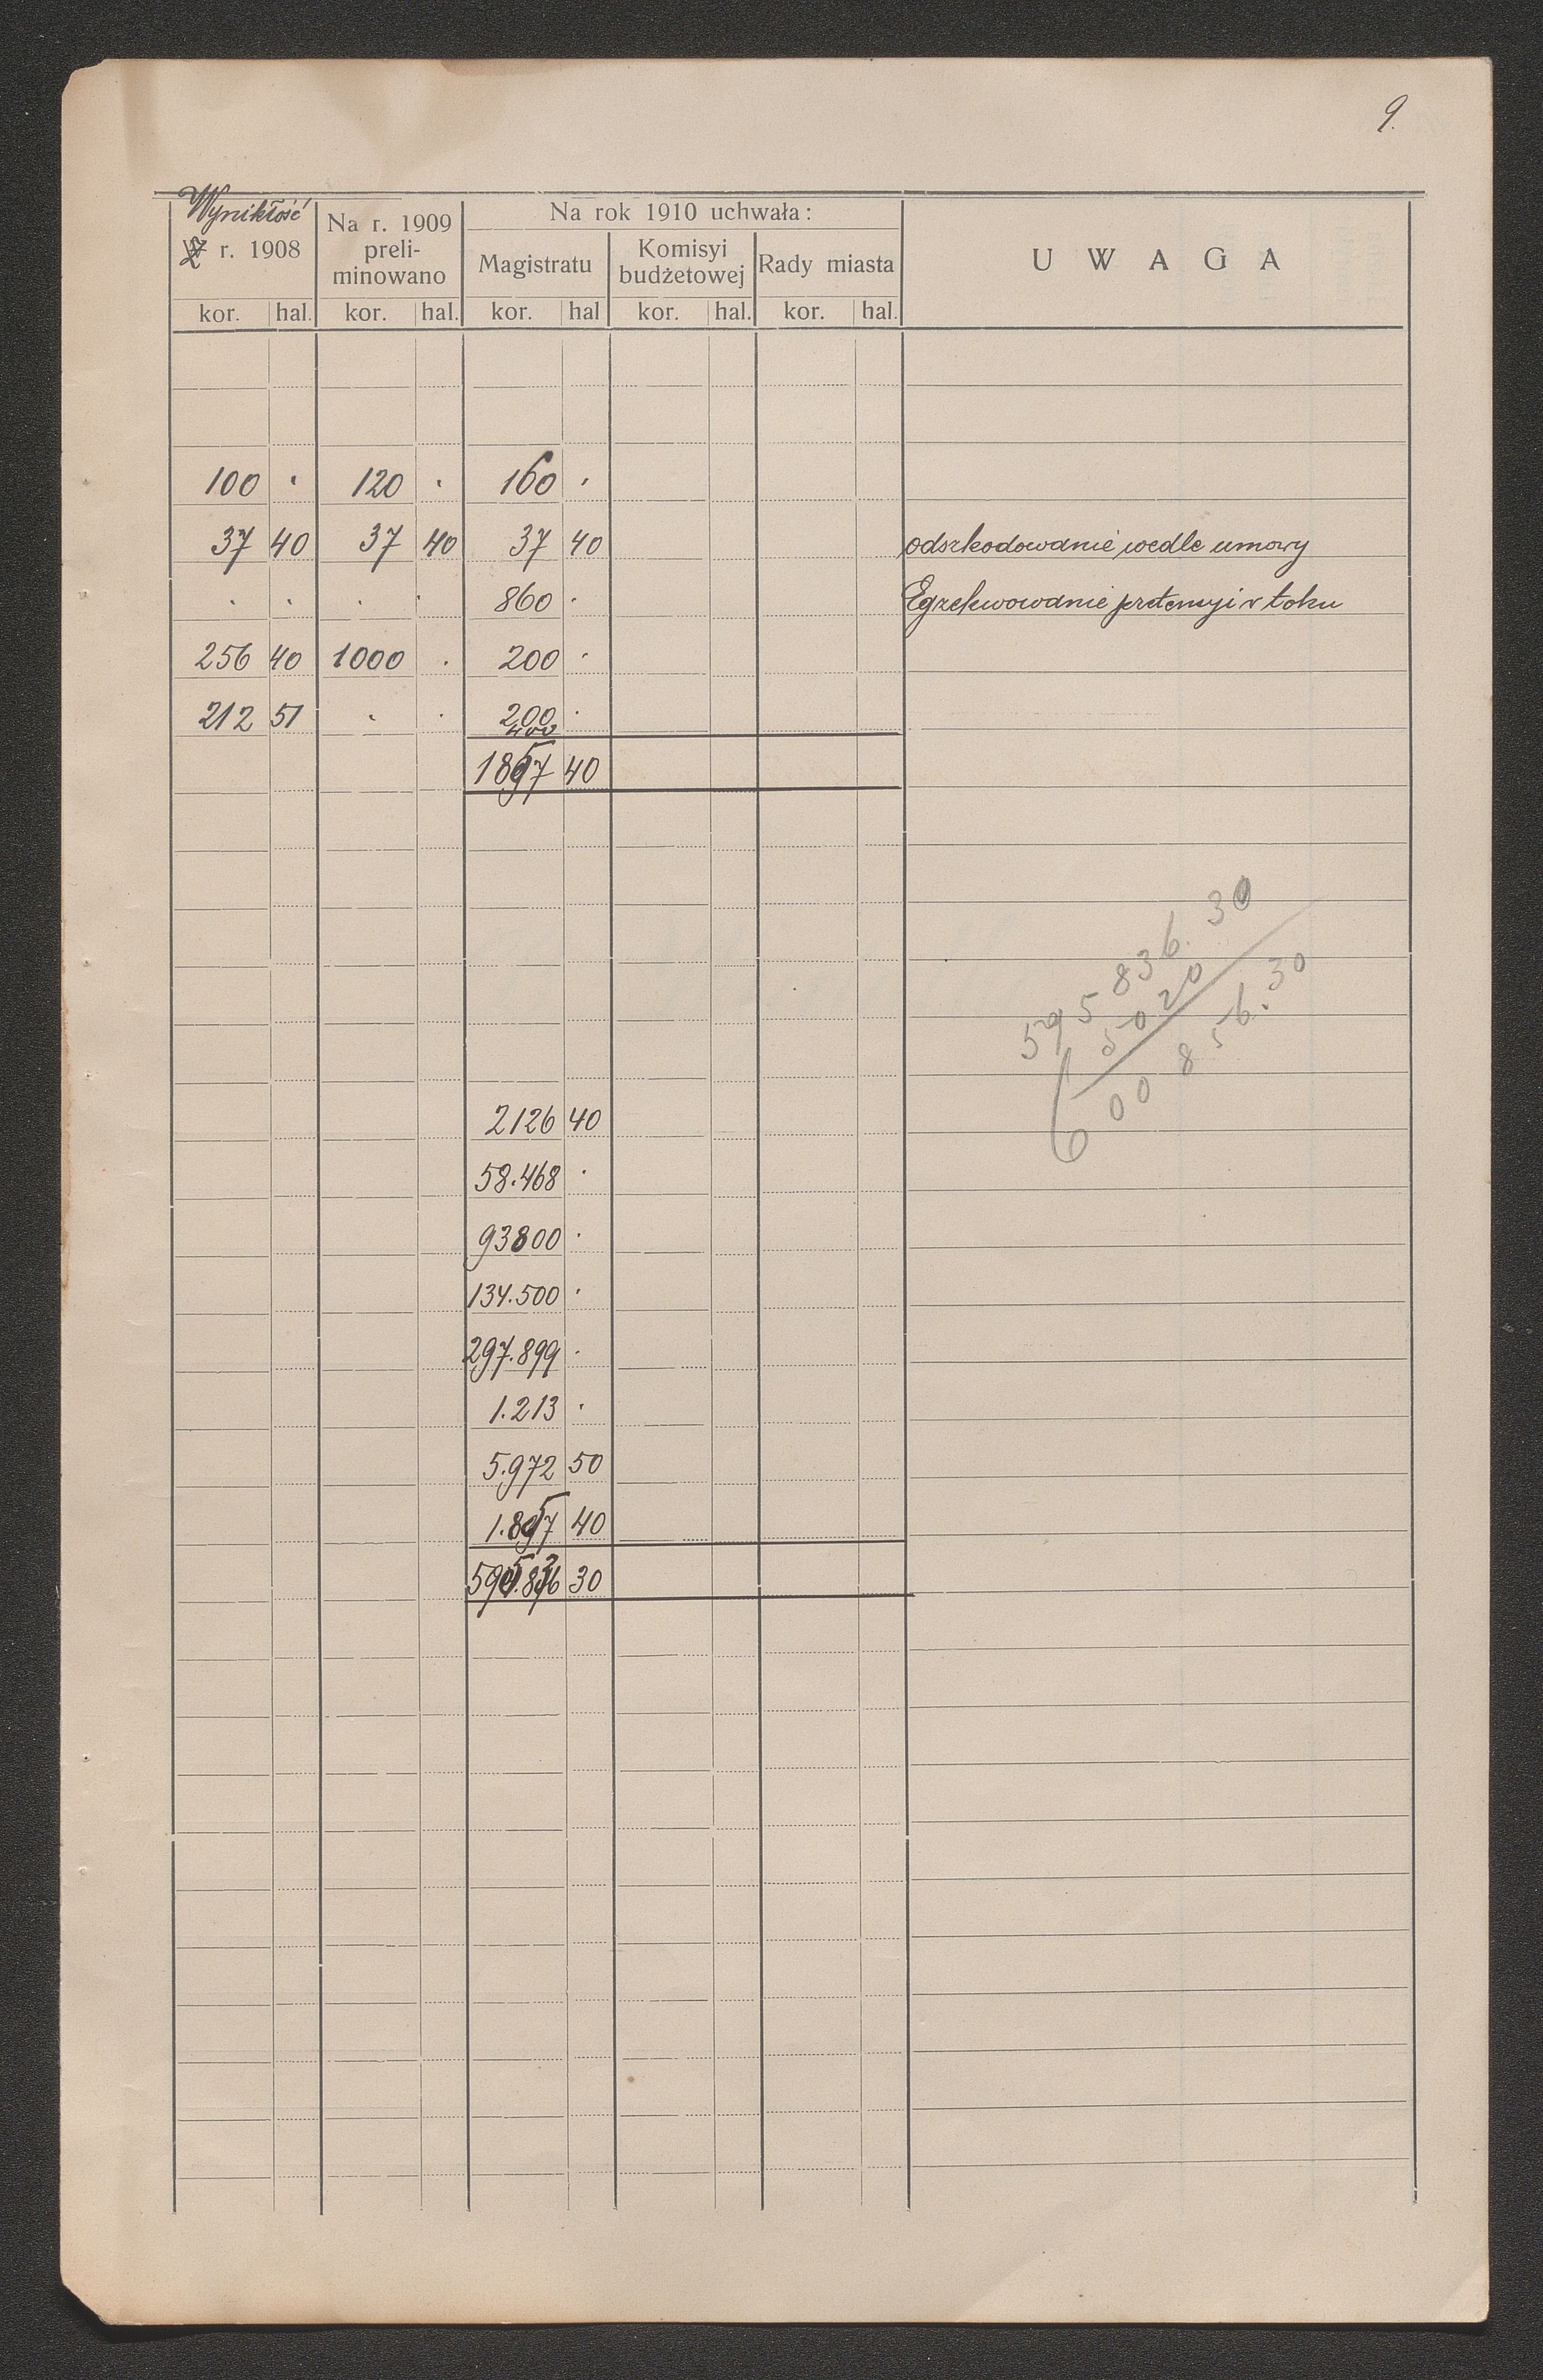 9.
Wynikłość
Z r. 1908
Na r. 1909 preli-minowano
Na rok 1910 uchwała:
Magistratu
Komisyi budżetowej
Rady miasta
UWAGA
kor. hal. kor. hal. kor. hal kor. hal. kor. hal.
100 · 120 · 160 ·
37 40 37 40 37 40 odszkodowanie wedle umowy
· · · · 860 · Egzekwowanie pretensyi w toku
256 40 1000 · 200 ·
212 51 · · 200 ·
400
1857 40
595 836. 30
5020
600 856. 30
2126 40
58.468 ·
93800 ·
134.500 ·
297.899 ·
1.213 ·
5.972 50
1.857 40
595.836 30